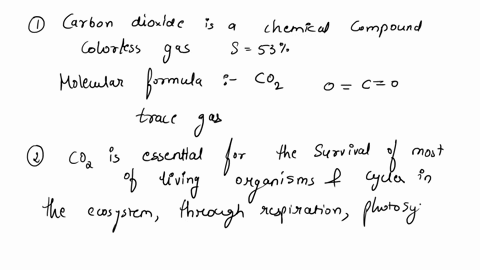 ① Carbon dioxide is a chemical compound
Colorless gas S = 53%
Molecular formula :- CO₂ O = C = O
trace gas
② CO₂ is essential for the survival of most
of living organisms & cycles in
the ecosystem, through respiration, photosy